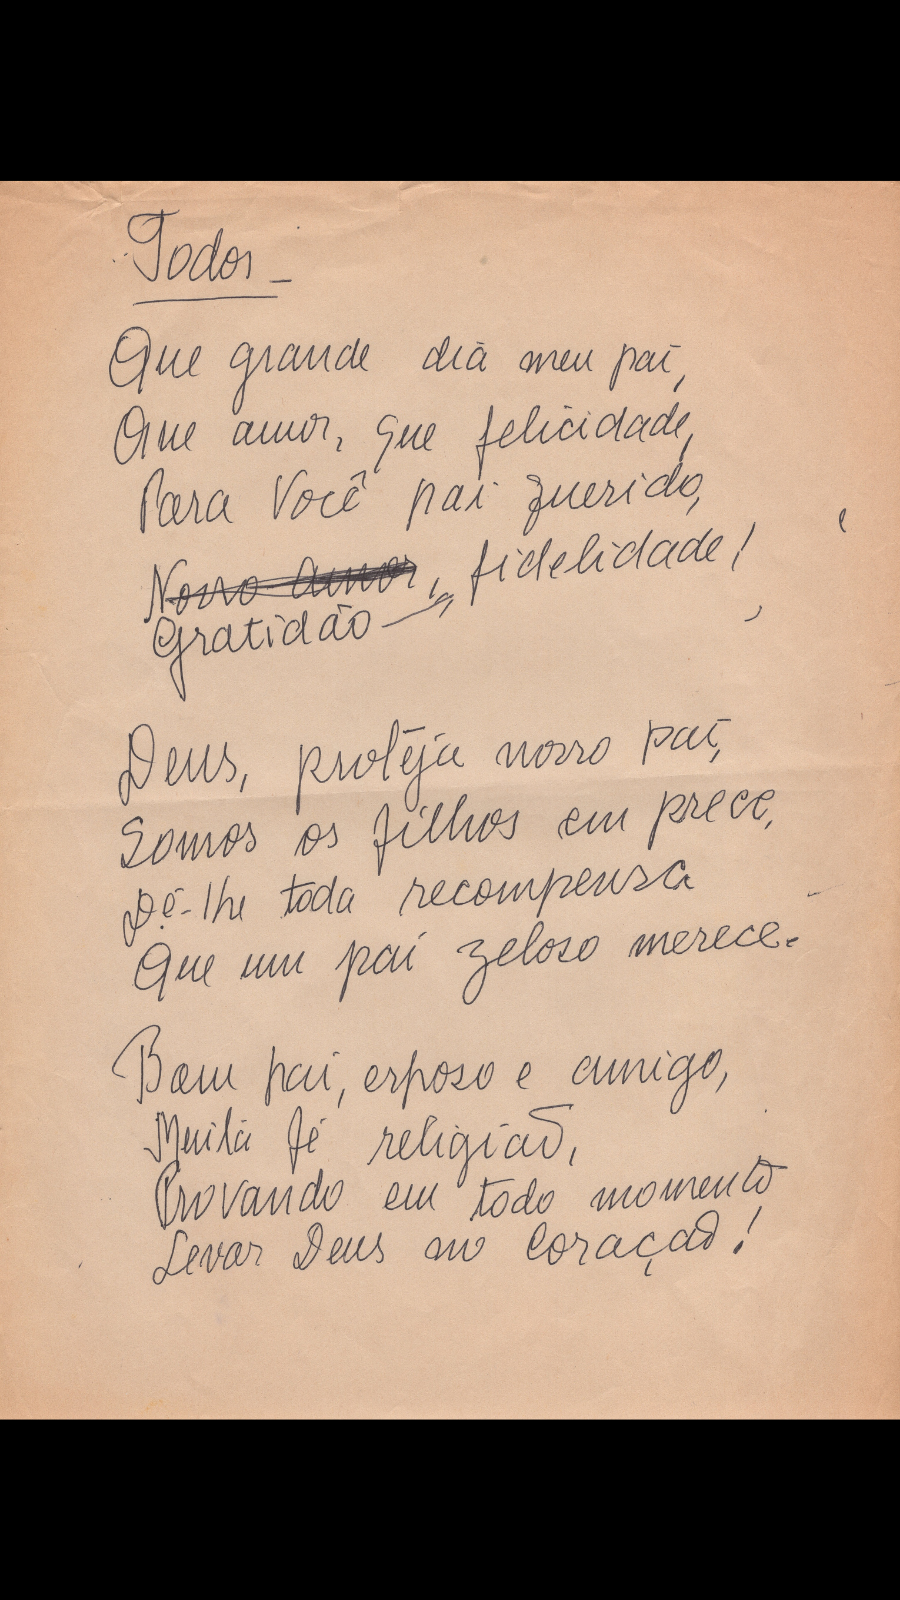 Todos -
Que grande dia meu pai,
Que amor, que felicidade,
Para Você pai querido,
Nosso amor, fidelidade!
Gratidão
Deus, protéja nosso pai,
Somos os filhos em prece,
Dê-lhe toda recompensa
Que um pai zeloso merece.
Bom pai, esposo e amigo,
Muita fé religião,
Provando em todo momento
Levar Deus no Coração!